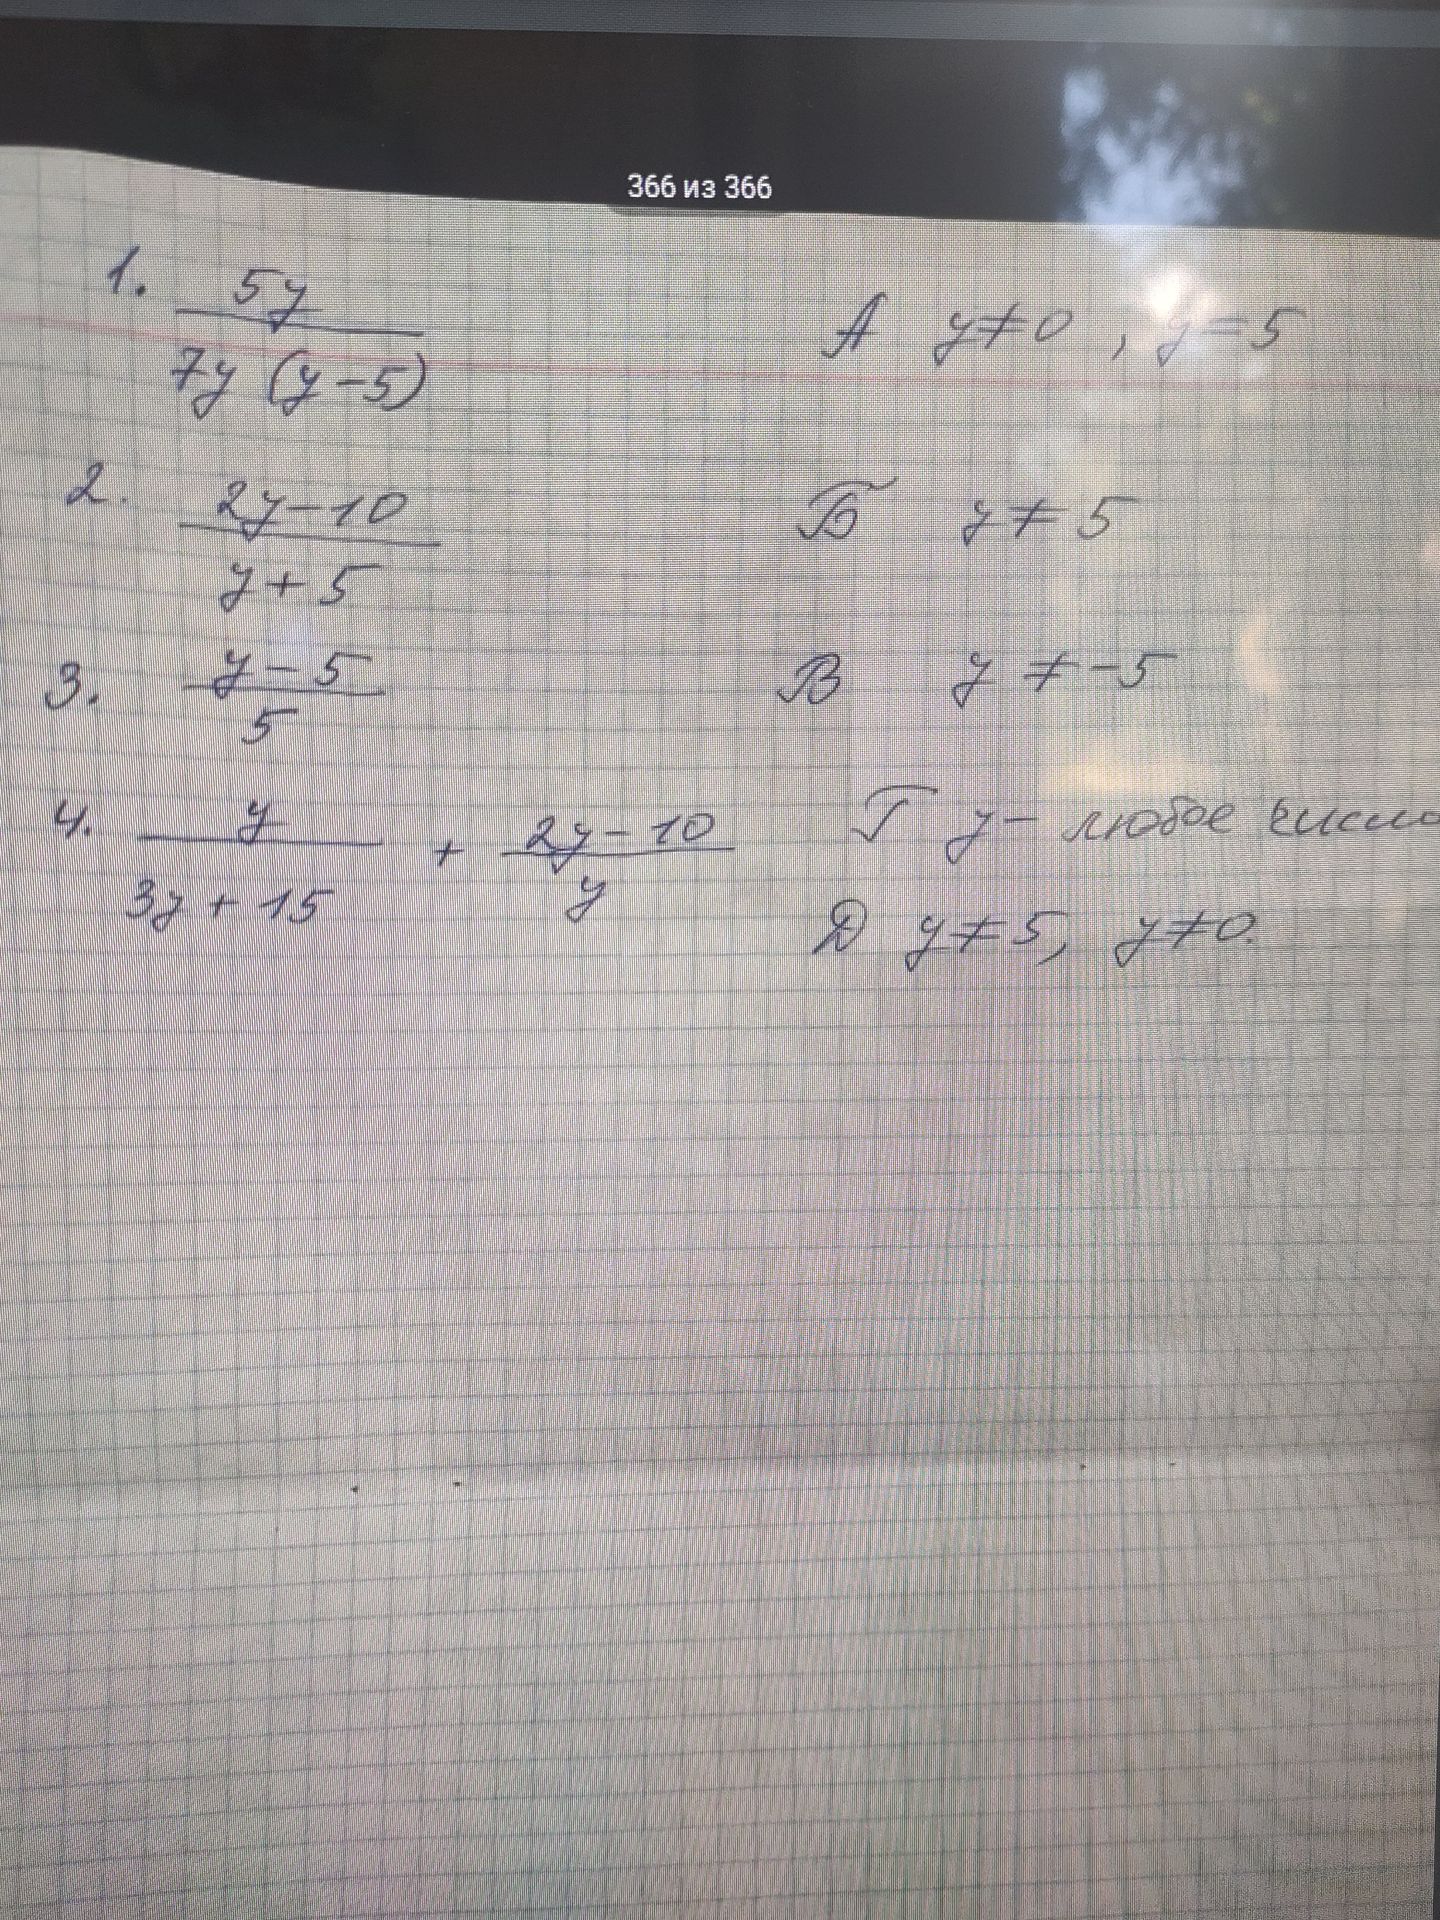 366 из 366
1. 5y / 7y (y-5)
А y≠0, y=5
2. 2y-10 / y+5
Б y≠5
3. y-5 / 5
В y≠-5
4. y / 3y+15 + 2y-10 / y
Г y- любое число
Д y≠5, y≠0.